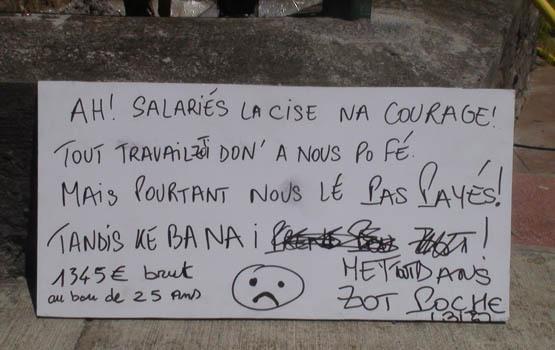 AH! SALARIÉS LA CISE NA COURAGE!
TOUT TRAVAIL ZOT DON' A NOUS PO FÉ.
MAIS POURTANT NOUS LÉ PAS PAYÉS!
TANDIS KE BANA i !
MET TOUT DANS
ZOT POCHE
1345€ brut
au bou de 25 Ans